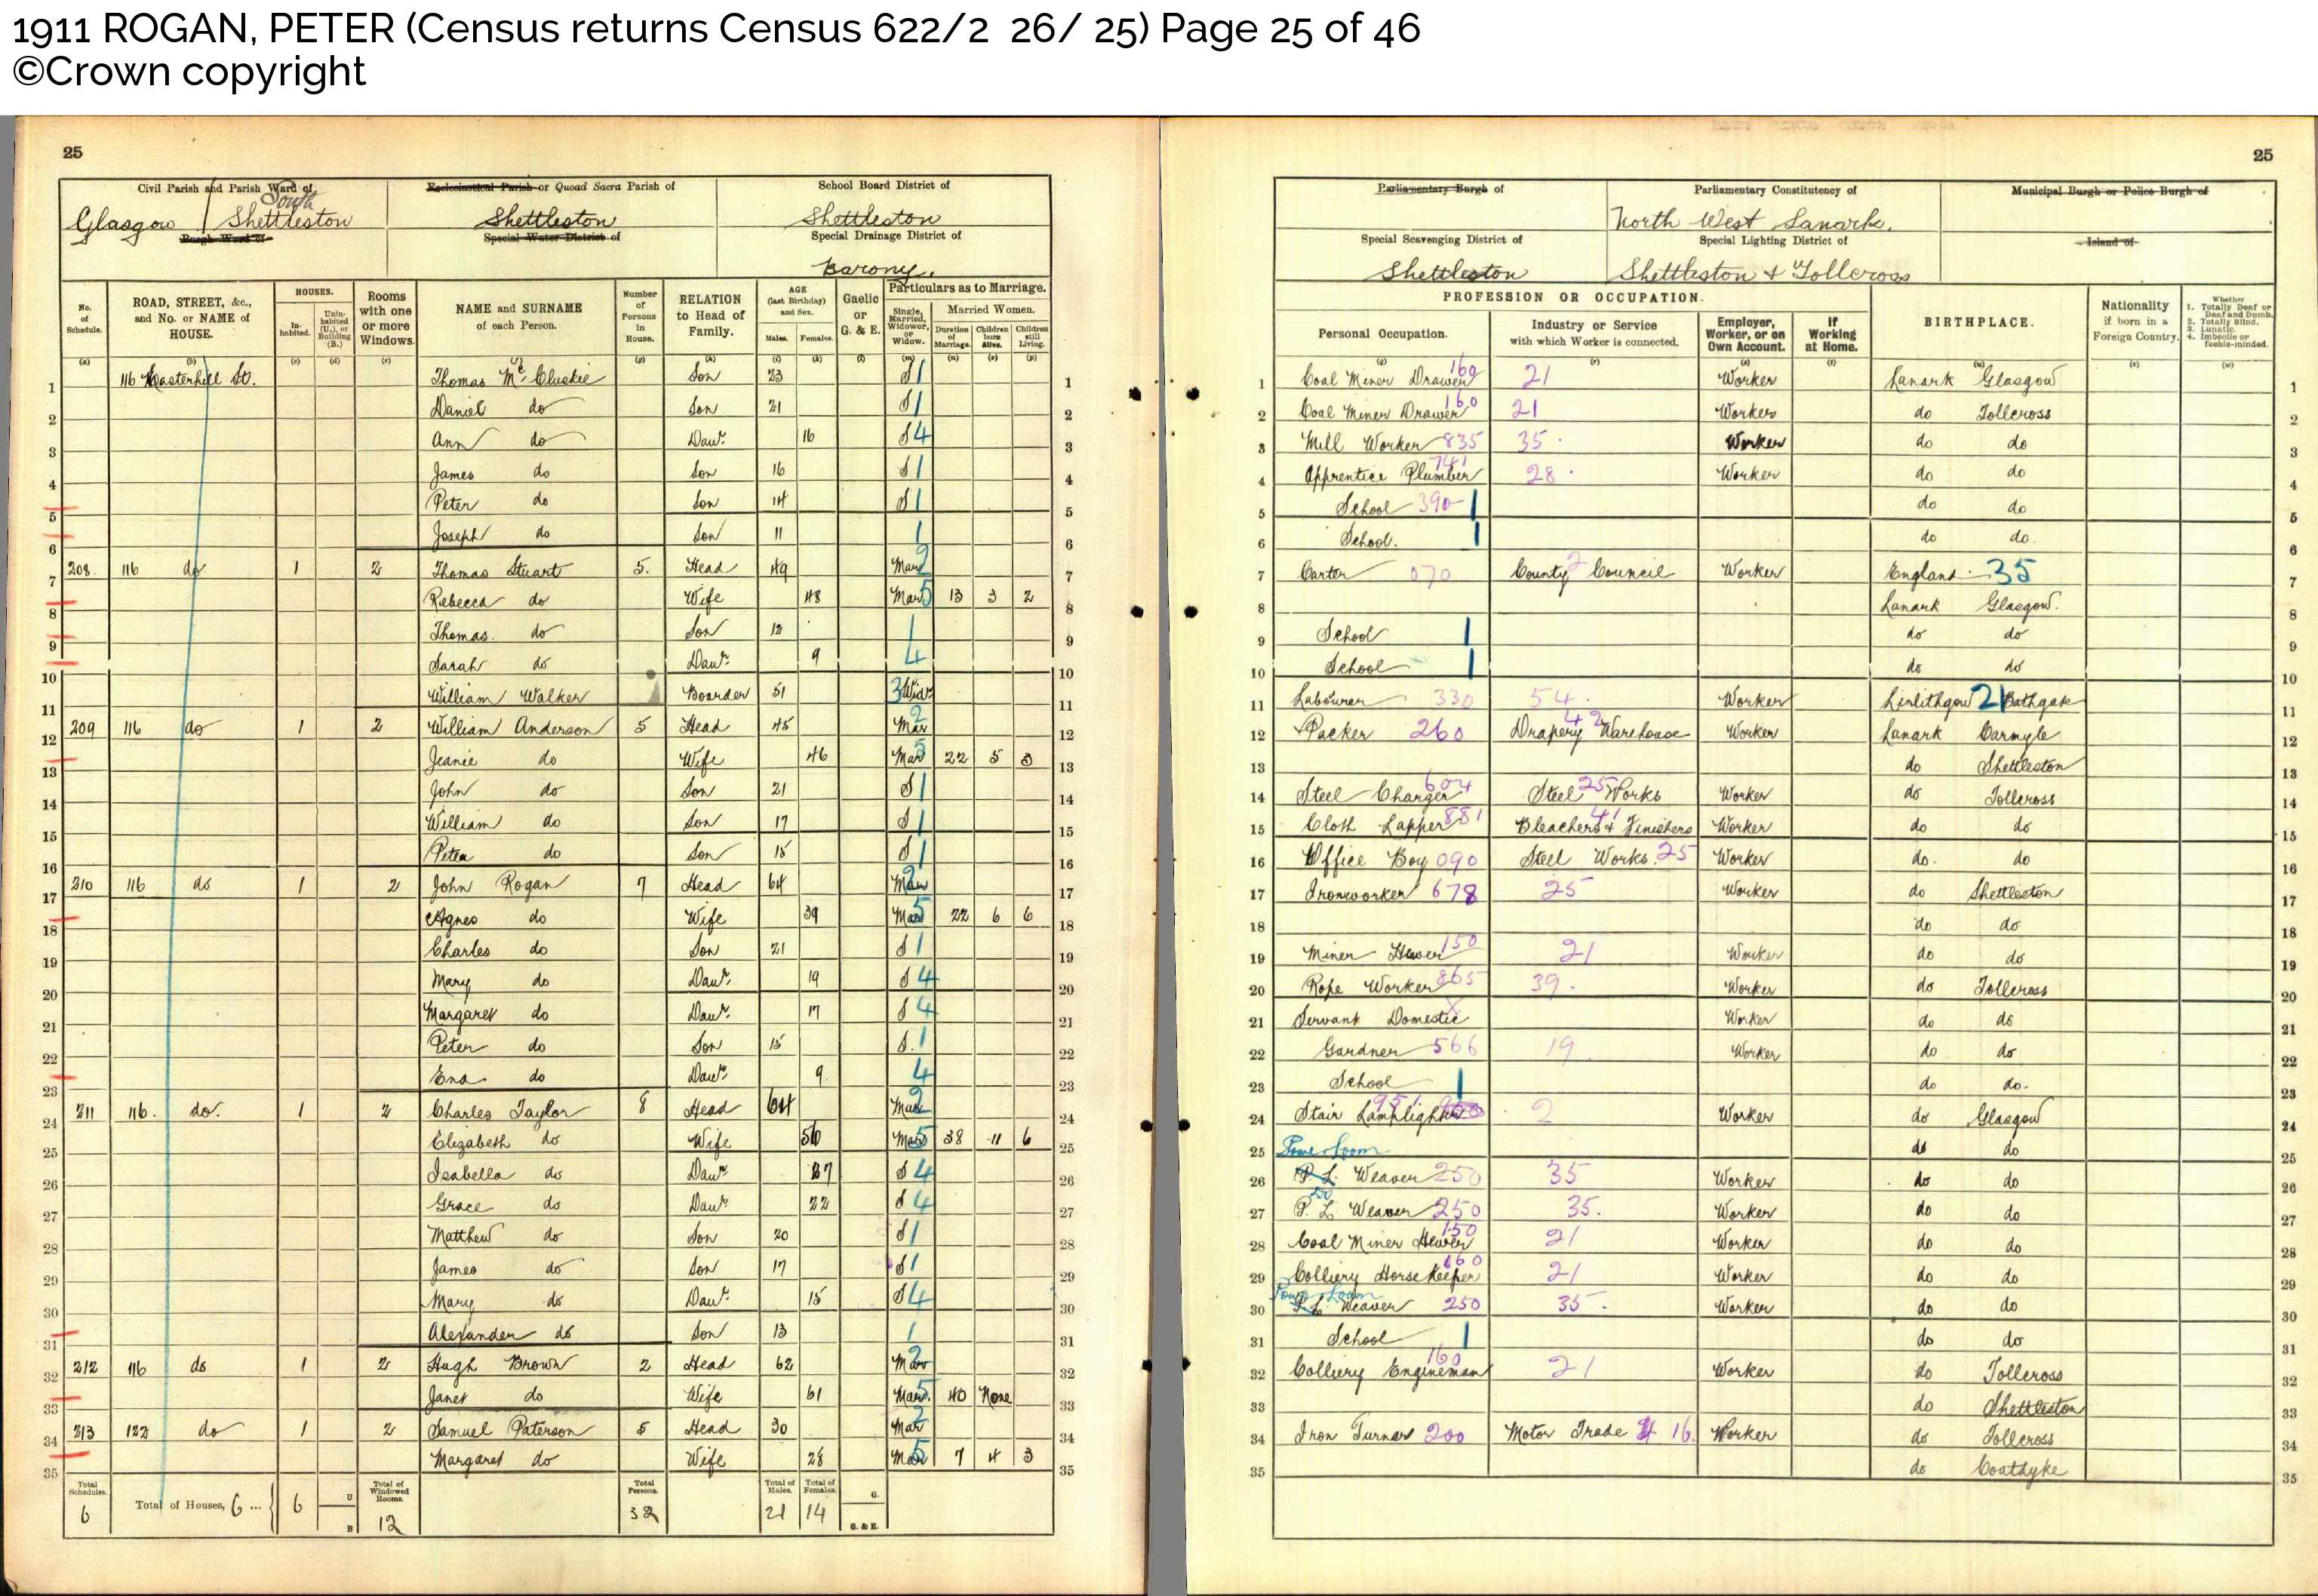 1911 ROGAN, PETER (Census returns Census 622/2 26/ 25) Page 25 of 46
©Crown copyright
25
Civil Parish and Parish Ward of
South
Glasgow Shettleston
Burgh Ward of
Ecclesiastical Parish or Quoad Sacra Parish of
Shettleston
Special Water District of
School Board District of
Shettleston
Special Drainage District of
Barony.
No. of Schedule.
ROAD, STREET, &c., and No. or NAME of HOUSE.
HOUSES.
In-habited.
Unin-habited (U.), or Building (B.)
Rooms with one or more Windows.
NAME and SURNAME of each Person.
Number of Persons in House.
RELATION to Head of Family.
AGE (last Birthday) and Sex.
Males. Females.
Gaelic or G. & E.
Particulars as to Marriage.
Single, Married, Widower, or Widow.
Married Women.
Duration of Marriage. Children born Alive. Children still Living.
(a) (b) (c) (d) (e) (f) (g) (h) (i) (k) (l) (m) (n) (o) (p)
1 116 Easterhill St. Thomas McCluskie Son 23 S 1 1
2 Daniel do Son 21 S 1 2
3 Ann do Daur. 16 S 4 3
4 James do Son 16 S 1 4
5 Peter do Son 14 S 1 5
6 Joseph do Son 11 1 6
7 208. 116 do 1 2 Thomas Stuart 5. Head 49 Mar 2 7
8 Rebecca do Wife 48 Mar 5 13 3 2 8
9 Thomas. do Son 12 1 9
10 Sarah do Daur. 9 4 10
11 William Walker Boarder 51 3 Widr 11
12 209 116 do 1 2 William Anderson 5 Head 45 Mar 2 12
13 Jeanie do Wife 46 Mar 5 22 5 3 13
14 John do Son 21 S 1 14
15 William do Son 17 S 1 15
16 Peter do Son 15 S 1 16
17 210 116 do 1 2 John Rogan 7 Head 64 Mar 2 17
18 Agnes do Wife 39 Mar 5 22 6 6 18
19 Charles do Son 21 S 1 19
20 Mary do Daur. 19 S 4 20
21 Margaret do Daur. 17 S 4 21
22 Peter do Son 15 S. 1 22
23 Ena do Daur. 9. 4 23
24 211 116. do. 1 2 Charles Taylor 8 Head 64 Mar 2 24
25 Elizabeth do Wife 56 Mar 5 38 11 6 25
26 Isabella do Daur. 27 S 4 26
27 Grace do Daur. 22 S 4 27
28 Matthew do Son 20 S 1 28
29 James do Son 17 S 1 29
30 Mary do Daur. 15 S 4 30
31 Alexander do Son 13 1 31
32 212 116 do 1 2 Hugh Brown 2 Head 62 Mar 2 32
33 Janet do Wife 61 Mar. 5 40 None 33
34 213 122 do 1 2 Samuel Paterson 5 Head 30 Mar 2 34
35 Margaret do Wife 28 Mar 5 7 4 3 35
Total Schedules. 6
Total of Houses, 6 ... 6
U
B
Total of Windowed Rooms. 12
Total Persons. 32
Total of Males. 21
Total of Females. 14
G.
G. & E.
25
Parliamentary Burgh of
Parliamentary Constitutency of
North West Lanark.
Municipal Burgh or Police Burgh of
Special Scavenging District of
Shettleston
Special Lighting District of
Shettleston & Tollcross
Island of
PROFESSION OR OCCUPATION.
Personal Occupation.
Industry or Service with which Worker is connected.
Employer, Worker, or on Own Account.
If Working at Home.
BIRTHPLACE.
Nationality if born in a Foreign Country.
Whether 1. Totally Deaf or Deaf and Dumb. 2. Totally Blind. 3. Lunatic. 4. Imbecile or feeble-minded.
(q) (r) (s) (t) (u) (v) (w)
1 Coal Miner Drawer 160 21 Worker Lanark Glasgow 1
2 Coal Miner Drawer 160 21 Worker do Tollcross 2
3 Mill Worker 835 35 Worker do do 3
4 Apprentice Plumber 741 28 Worker do do 4
5 School 390 1 do do 5
6 School. 1 do do. 6
7 Carter 070 County Council 2 Worker England 35 7
8 Lanark Glasgow. 8
9 School 1 do do 9
10 School 1 do do 10
11 Labourer 330 54 Worker Linlithgow 21 Bathgate 11
12 Packer 260 Drapery Warehouse 42 Worker Lanark Carmyle 12
13 do Shettleston 13
14 Steel Charger 604 Steel Works 25 Worker do Tollcross 14
15 Cloth Lapper 881 Bleachers & Finishers 41 Worker do do 15
16 Office Boy 090 Steel Works. 25 Worker do. do 16
17 Ironworker 678 25 Worker do Shettleston 17
18 do do 18
19 Miner Hewer 150 21 Worker do do 19
20 Rope Worker 865 39. Worker do Tollcross 20
21 Servant Domestic X Worker do do 21
22 Gardner 566 19 Worker do do 22
23 School 1 do do. 23
24 Stair Lamplighter 951 2 Worker do Glasgow 24
25 do do 25
Power Loom
26 P. L. Weaver 250 35 Worker do do 26
27 P. L. Weaver 250 35. Worker do do 27
28 Coal Miner Hewer 150 21 Worker do do 28
29 Colliery Horse Keeper 160 21 Worker do do 29
Power Loom
30 P. L. Weaver 250 35. Worker do do 30
31 School 1 do do 31
32 Colliery Engineman 160 21 Worker do Tollcross 32
33 do Shettleston 33
34 Iron Turner 200 Motor Trade 16. Worker do Tollcross 34
35 do Coatdyke 35